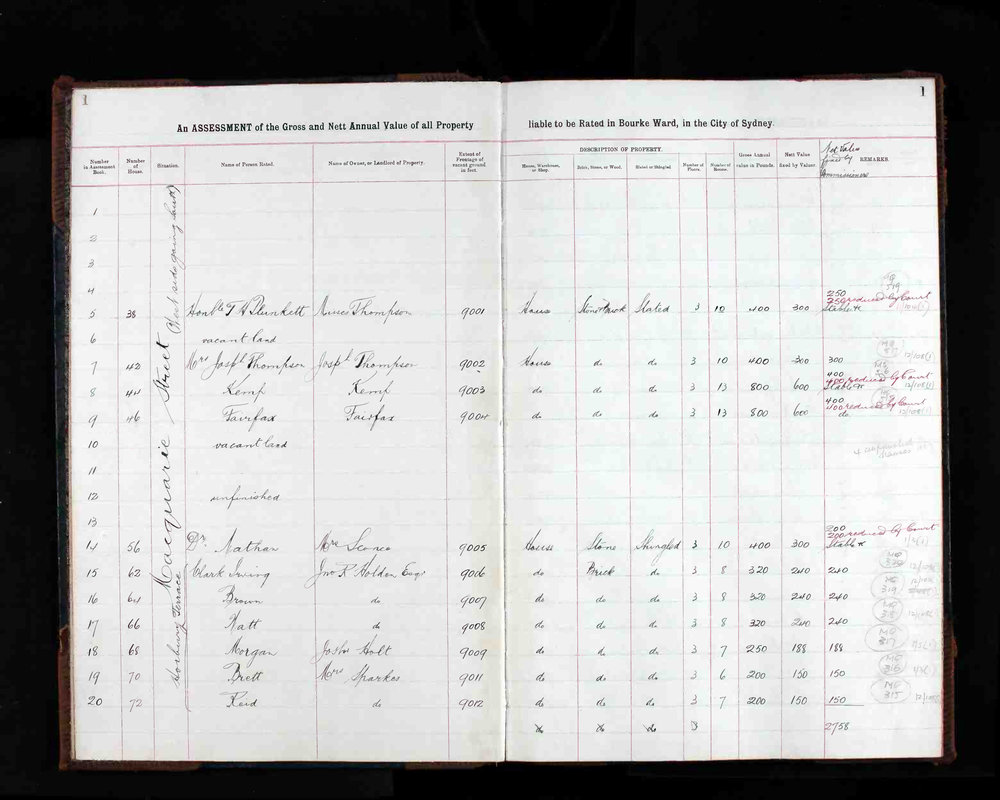 1
1
An ASSESSMENT of the Gross and Nett Annual Value of all Property liable to be Rated in Bourke Ward, in the City of Sydney.
DESCRIPTION OF PROPERTY.
Number in Assessment Book. Number of House. Situation. Name of Person Rated. Name of Owner, or Landlord of Property. Extent of Frontage of vacant ground in feet. House, Warehouse, or Shop. Brick, Stone, or Wood. Slated or Shingled Number of Floors. Number of Rooms. Gross Annual value in Pounds. Nett Value fixed by Valuer. Net Value fixed by Commissioners REMARKS.
Macquarie Street (West side going South)
1
2
3
4
250
5 38 Honble T H Plunkett Thompson 9001 House Stone Brick Slated 3 10 400 300 750 reduced by Court
Stable &c
6 vacant land
7 42 Mrs Josph Thompson Josph Thompson 9002 House do do 3 10 400 300 300
400
8 44 Kemp Kemp 9003 do do do 3 13 800 600 400 reduced by Court
Stable &c
400
9 46 Fairfax Fairfax 9004 do do do 3 13 800 600 400 reduced by Court
do
10 vacant land
11
12 unfinished
13
200
14 56 Dr. Nathan Mrs Sconce 9005 House Stone Shingled 3 10 400 300 200 reduced by Court
Stable &c
Horbury Terrace
15 62 Clark Irving Jno R Holden Esqr 9006 do Brick do 3 8 320 240 240
16 64 Brown do 9007 do do do 3 8 320 240 240
17 66 Katt do 9008 do do do 3 8 320 240 240
18 68 Morgan Josh Holt 9009 do do do 3 7 250 188 188
19 70 Brett Mrs Sparkes 9011 do do do 3 6 200 150 150
20 72 Reid do 9012 do do do 3 7 200 150 150
do do do 3 2758